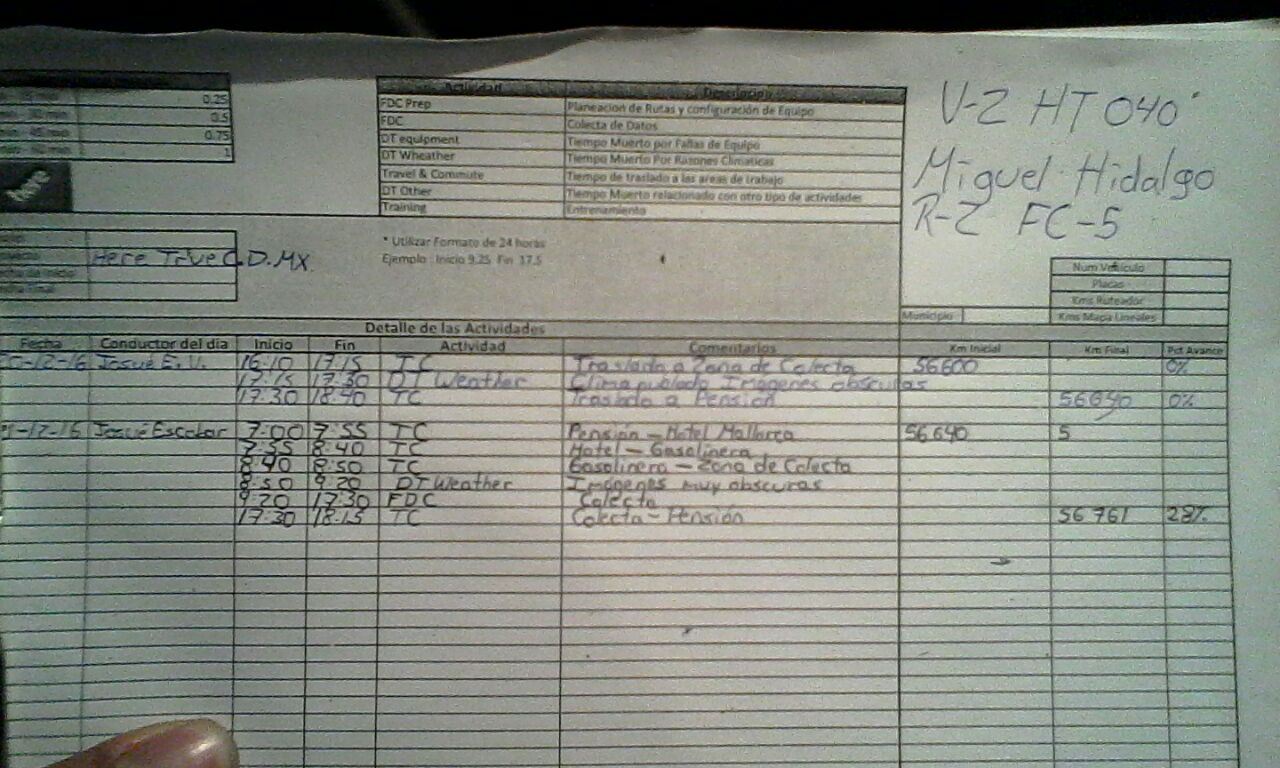 0.25
0.5
0.75
1
Actividad Descripcion
FDC Prep Planeacion de Rutas y configuración de Equipo
FDC Colecta de Datos
DT equipment Tiempo Muerto por Fallas de Equipo
DT Wheather Tiempo Muerto Por Razones Climaticas
Travel & Commute Tiempo de traslado a las areas de trabajo
DT Other Tiempo Muerto relacionado con otro tipo de actividades
Training Entrenamiento
V-2 HT 040
Miguel Hidalgo
R-2 FC-5
* Utilizar Formato de 24 horas
Ejemplo Inicio 9.25 Fin 17.5
Here True C.D.MX.
Num Vehículo
Placas
Kms Ruteador
Municipio Kms Mapa Lineales
Detalle de las Actividades
Fecha Conductor del día Inicio Fin Actividad Comentarios Km Inicial Km Final Pct Avance
-12-16 Josué E. V. 16:10 17:15 TC Traslado a Zona de Colecta 56600 0%
17:15 17:30 DT Weather Clima nublado Imágenes obscuras
17:30 18:40 TC Traslado a Pensión 56640 0%
-12-16 Josué Escobar 7:00 7:55 TC Pensión - Hotel Mallorca 56640 5
7:55 8:40 TC Hotel - Gasolinera
8:40 8:50 TC Gasolinera - Zona de Colecta
8:50 9:20 DT Weather Imágenes muy obscuras
9:20 17:30 FDC Colecta
17:30 18:15 TC Colecta - Pensión 56 761 28%